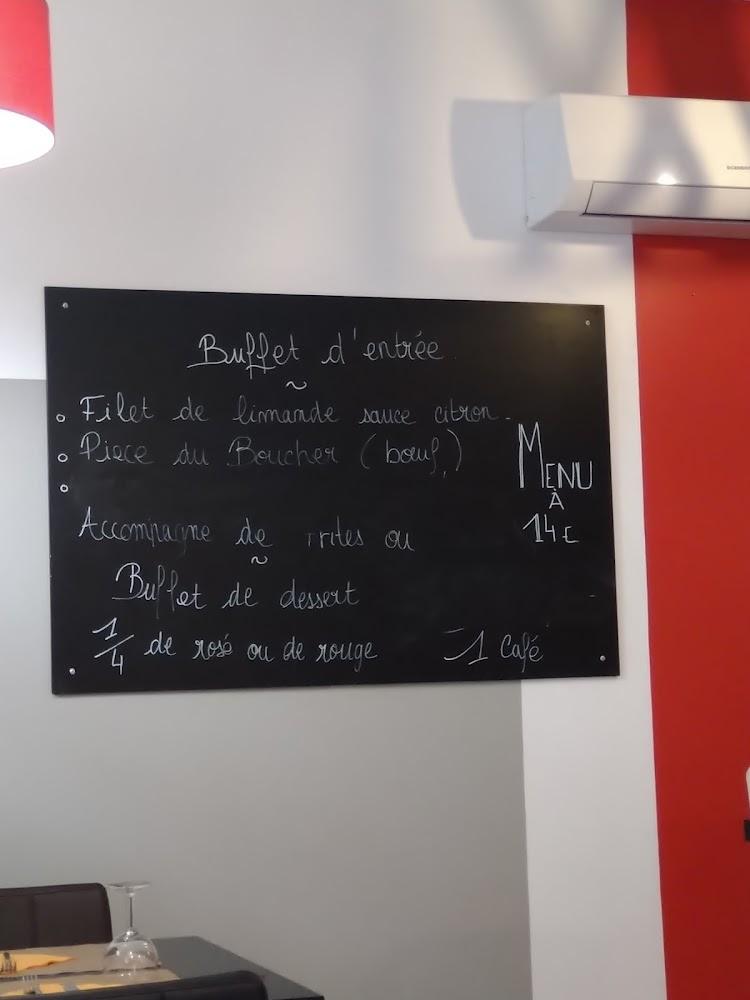 Buffet d'entrée
~
Filet de limande sauce citron
Piece du Boucher (bœuf)
MENU
À
14 €
Accompagne de frites ou
~
Buffet de dessert
1/4 de rosé ou de rouge
1 Café